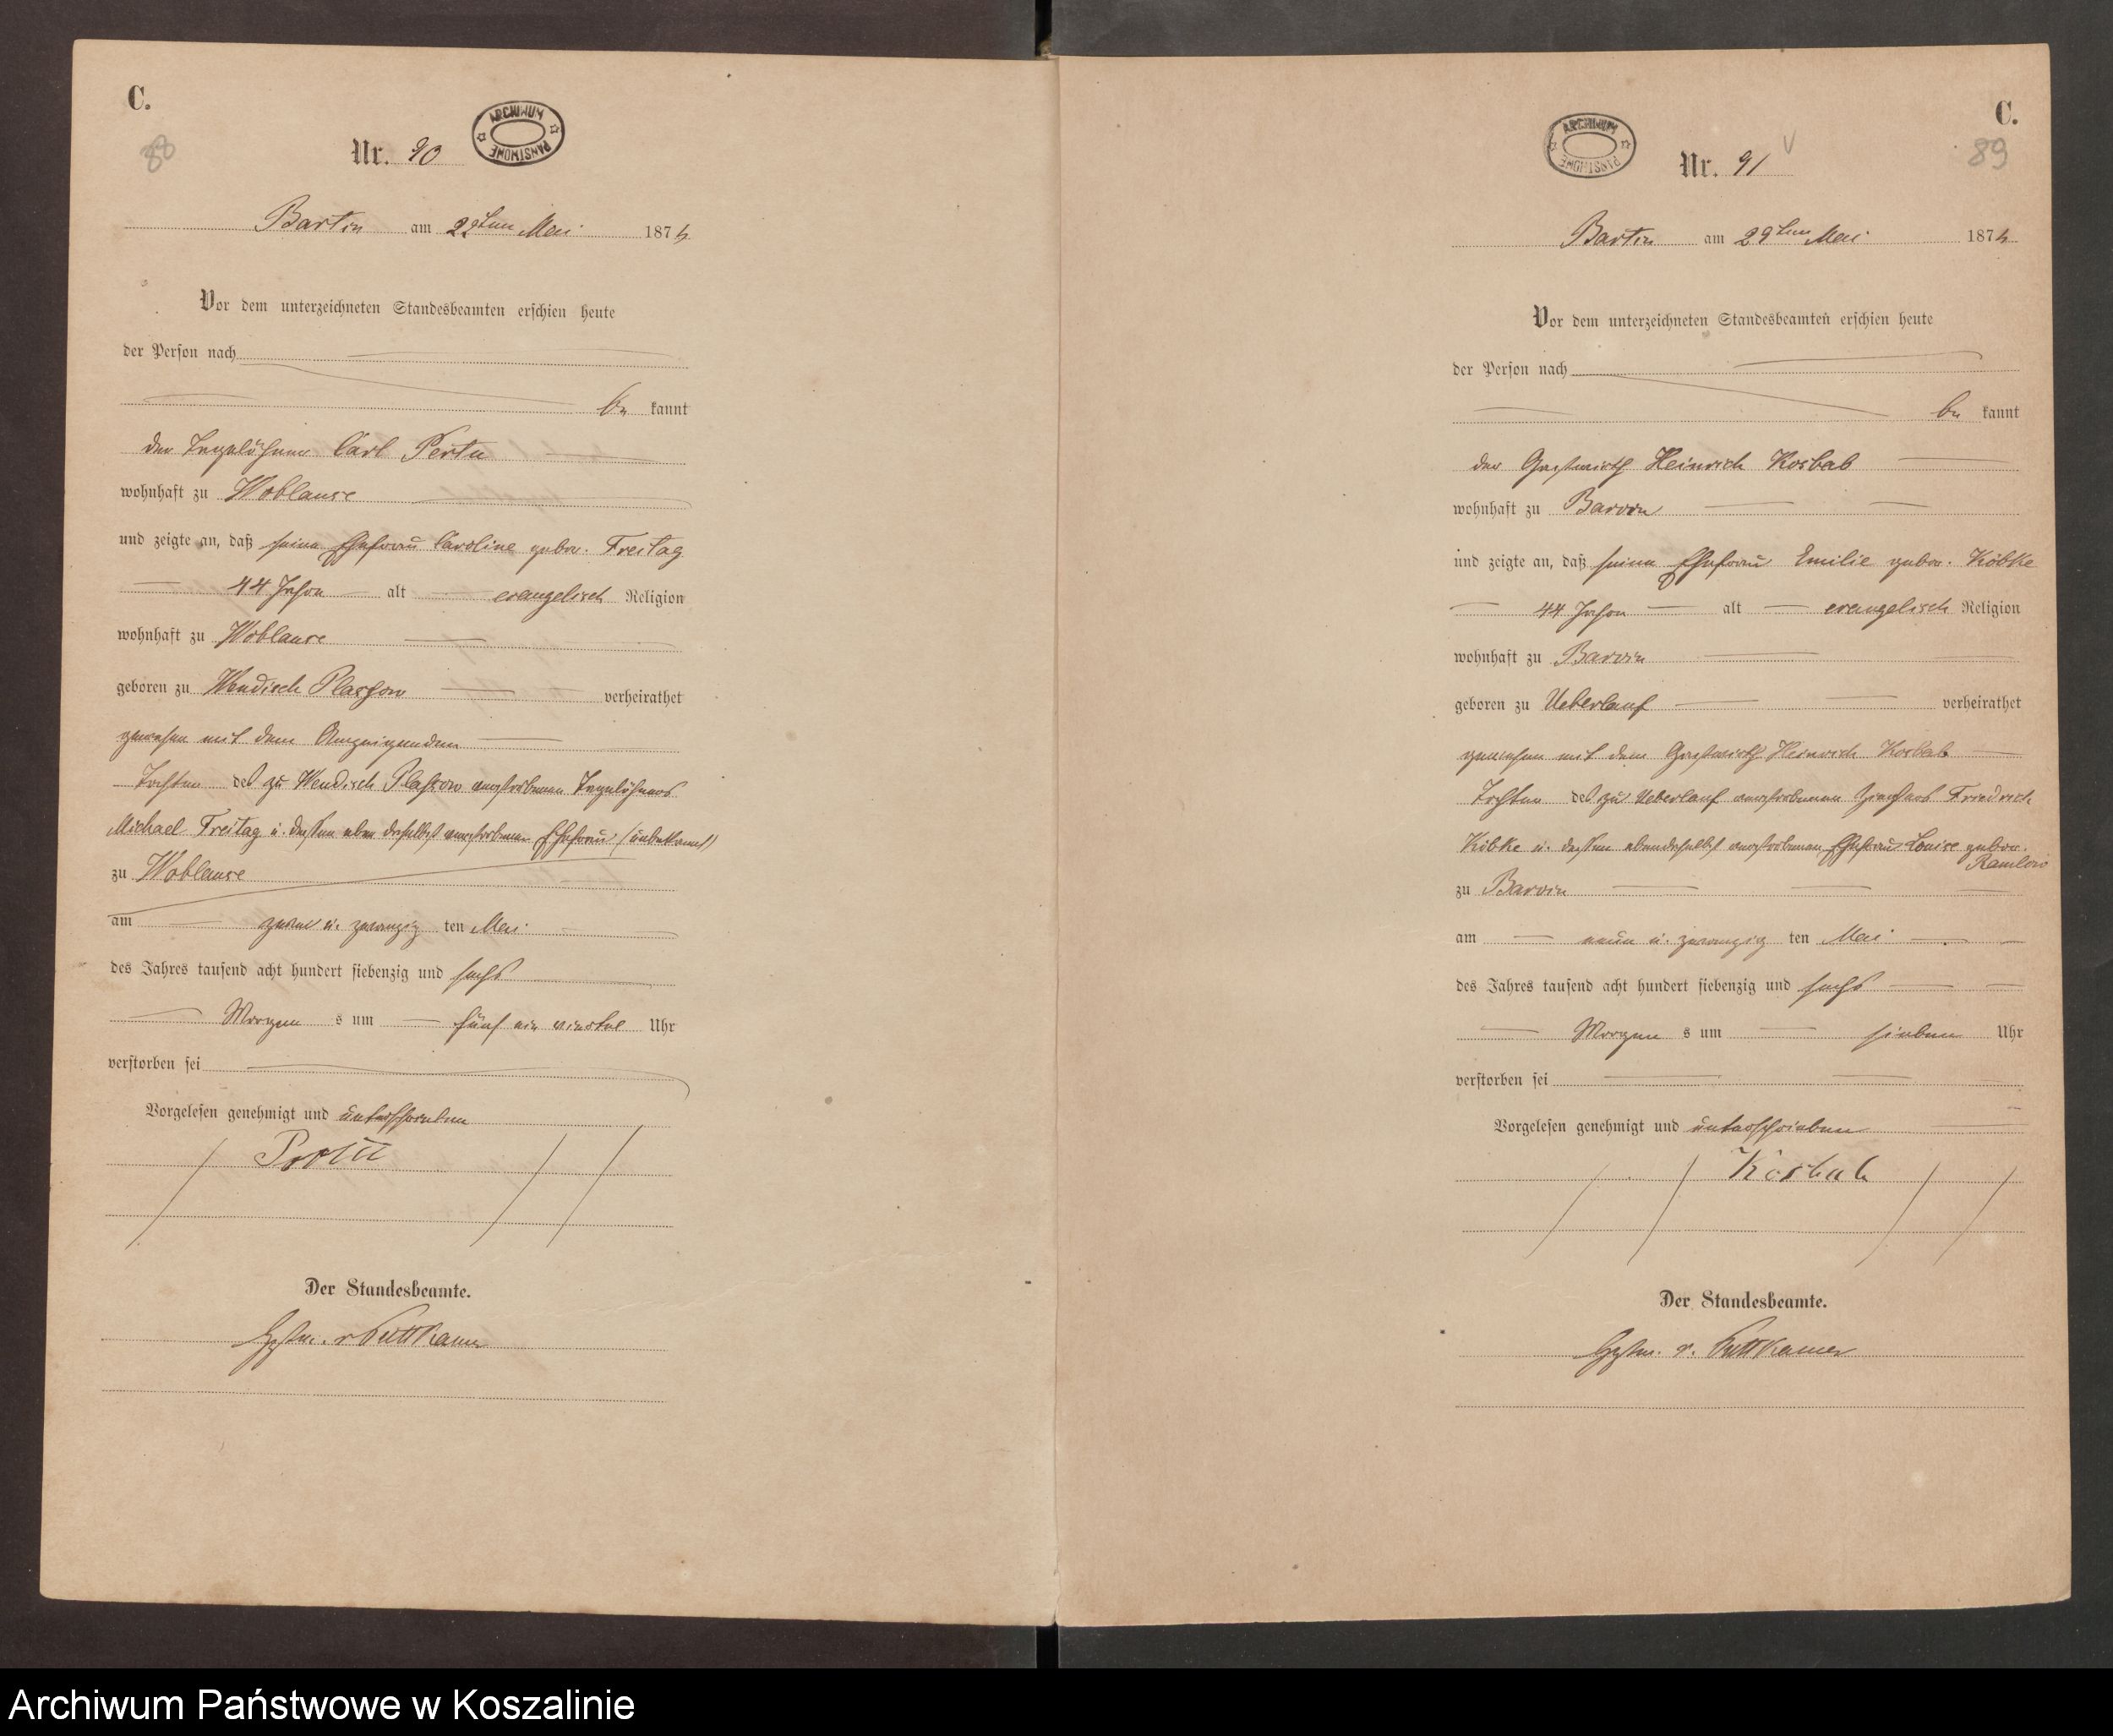 C.
88
Nr. 90
ARCHIWUM PAŃSTWOWE
Bartin am 22ten Mai 1876
Vor dem unterzeichneten Standesbeamten erschien heute
der Person nach
be kannt
der Tagelöhner Carl
wohnhaft zu Woblanse
und zeigte an, daß seine Ehefrau Caroline gebor. Freitag
44 Jahre alt evangelisch Religion
wohnhaft zu Woblanse
geboren zu Wendisch Plassow verheirathet
gewesen mit dem Anzeigenden
Tochter des zu Wendisch Plassow verstorbenen Tagelöhners
Michael Freitag u. dessen eben daselbst verstorbenen Ehefrau (unbekannt)
zu Woblanse
am zwei u. zwanzig ten Mai
des Jahres tausend acht hundert siebenzig und sechs
Morgen s um fünf ein viertel Uhr
verstorben sei
Vorgelesen genehmigt und unterschrieben
Der Standesbeamte.
v Puttkamer
C.
89
ARCHIWUM PAŃSTWOWE
Nr. 91
Bartin am 29ten Mai 1876
Vor dem unterzeichneten Standesbeamten erschien heute
der Person nach
be kannt
der Gastwirth Heinrich Kosbab
wohnhaft zu Barvin
und zeigte an, daß seine Ehefrau Emilie gebor. Köbke
44 Jahre alt evangelisch Religion
wohnhaft zu Barvin
geboren zu Ueberlauf verheirathet
gewesen mit dem Gastwirth Heinrich Kosbab
Tochter des zu Ueberlauf verstorbenen Friedrich
Köbke u. dessen ebendaselbst verstorbenen Ehefrau Louise gebor.
Ramlow
zu Barvin
am neun u. zwanzig ten Mai
des Jahres tausend acht hundert siebenzig und sechs
Morgen s um sieben Uhr
verstorben sei
Vorgelesen genehmigt und unterschrieben
Kosbab
Der Standesbeamte.
v. Puttkamer
Archiwum Państwowe w Koszalinie